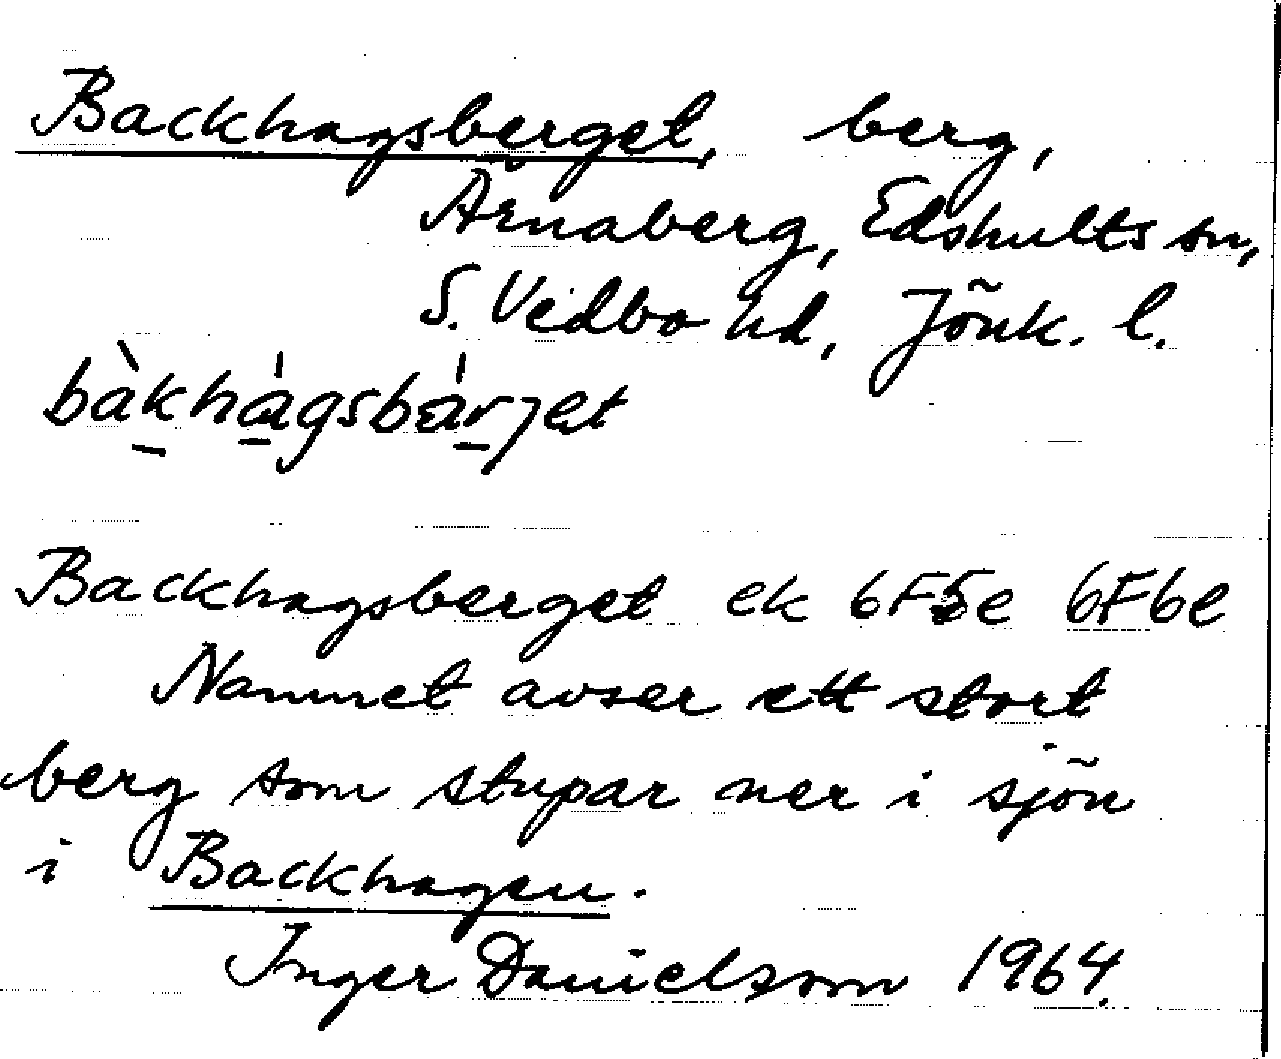 Backhagsberget, berg,
Ärnaberg, Edshults sn,
S. Vedbo hd, Jönk. l.
Backhagsberget ek 6F5e 6F6e
Namnet avser ett stort
berg som stupar ner i sjön
i Backhagen.
Inger Danielsson 1964.